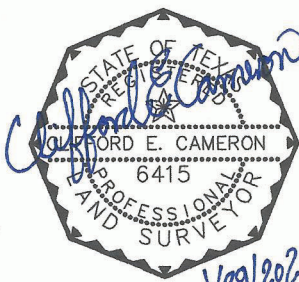 STATE OF TEXAS
REGISTERED
Clifford E Cameron
CLIFFORD E. CAMERON
6415
PROFESSIONAL
LAND SURVEYOR